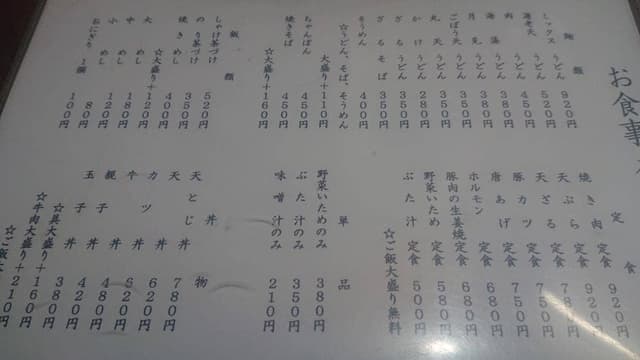 お食事
麺類
ミックスうどん ９２０円
海老天うどん ５２０円
肉うどん
海藻うどん ３８０円
月見うどん ３５０円
ごぼう天うどん ３５０円
丸天うどん ３５０円
かけうどん ２８０円
ざるうどん ３５０円
ざるそば ３５０円
そうめん ４００円
☆うどん、そば、そうめん
大盛り＋１１０円
ちゃんぽん ４５０円
焼きそば ４５０円
☆大盛り＋１６０円
飯類
しゃけ茶づけ ５２０円
のり茶づけ ３５０円
焼きめし ４００円
☆大盛り＋１２０円
大めし １８０円
中めし １２０円
小めし ８０円
おにぎり１個 １００円
定食
焼き肉定食 ９２０円
天ぷら定食 ９２０円
天ざる定食
豚カツ定食 ７５０円
唐あげ定食 ７５０円
ホルモン定食 ６８０円
豚肉の生姜焼定食 ６８０円
野菜いため定食 ５８０円
ぶた汁定食 ５００円
☆ご飯大盛り無料
単品
野菜いためのみ ３８０円
ぶた汁のみ ３５０円
味噌汁のみ ２１０円
丼物
天とじ丼 ７８０円
天丼
カツ丼 ６２０円
牛丼 ６２０円
親子丼 ４８０円
玉子丼 ４２０円
☆具大盛り＋３８０円
☆牛肉大盛り＋１６０円
☆ご飯大 ２１０円